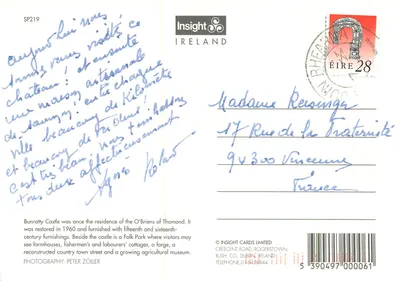 SP219
aujourd'hui nous
avons visité ce
château ! et ensuite
une maison artisanale
de saumon ! entre chaque
ville beaucoup de kilomètres
et beaucoup de
C'est très beau, nous
tous deux affectueusement
Agnès
Bunratty Castle was once the residence of the O'Briens of Thomond. It
was restored in 1960 and furnished with fifteenth and sixteenth-
century furnishings. Beside the castle is a Folk Park where visitors may
see farmhouses, fishermen's and labourers' cottages, a forge, a
reconstructed country town street and a growing agricultural museum.
PHOTOGRAPHY: PETER ZÖLLER
Insight
IRELAND
ÉIRE 28
Madame
17 Rue de la Fraternité
94300 Vincennes
France
© INSIGHT CARDS LIMITED
CRESCENT ROAD, ROGERSTOWN,
RUSH, CO. DUBLIN, IRELAND
5 390497 000061